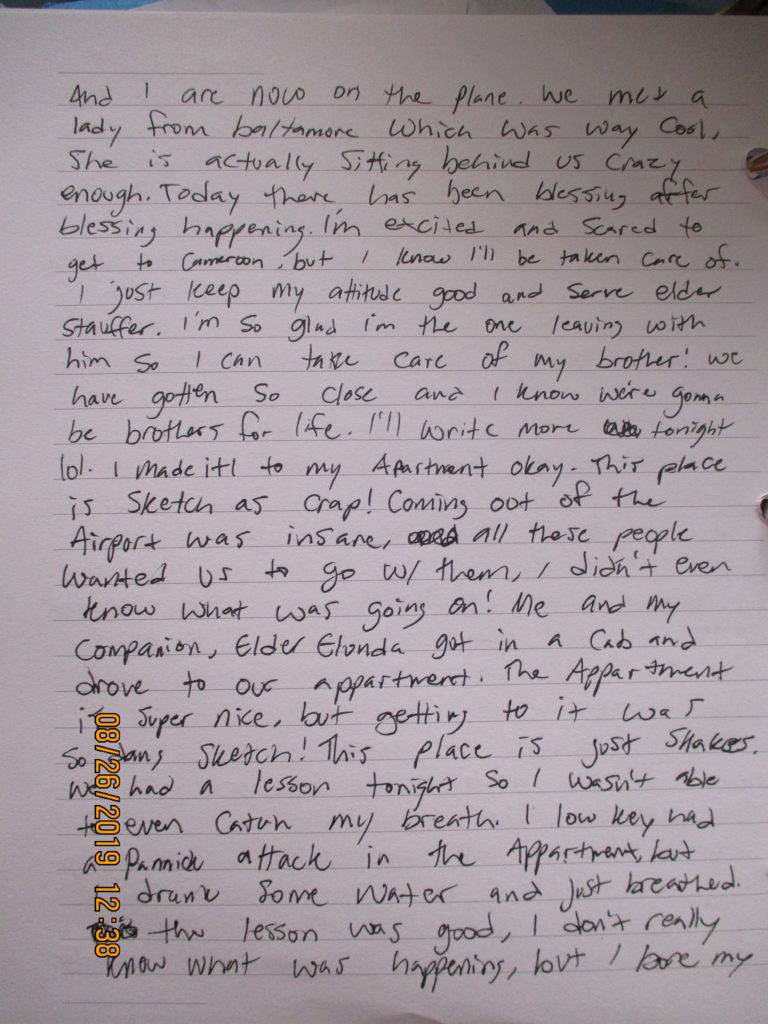 And I are now on the plane. We met a
lady from baltamore which was way cool,
She is actually sitting behind us crazy
enough. Today there has been blessing after
blessing happening. I'm excited and scared to
get to Cameroon, but I know I'll be taken care of.
I just keep my attitude good and serve elder
Stauffer. I'm so glad i'm the one leaving with
him so I can take care of my brother! we
have gotten so close and I know we're gonna
be brothers for life. I'll write more tonight
lol. I made it! to my Apartment okay. This place
is sketch as crap! Coming out of the
Airport was insane, all these people
wanted us to go w/ them, I didn't even
know what was going on! Me and my
Companion, Elder Elunda got in a Cab and
drove to our appartment. The Appartment
is super nice, but getting to it was
so dang sketch! This place is just shakes.
we had a lesson tonight so I wasn't able
to even catch my breath. I low key had
a Pannick attack in the Appartment, but
drank some water and just breathed.
the lesson was good, I don't really
know what was happening, but I bore my
08/26/2019 12:38